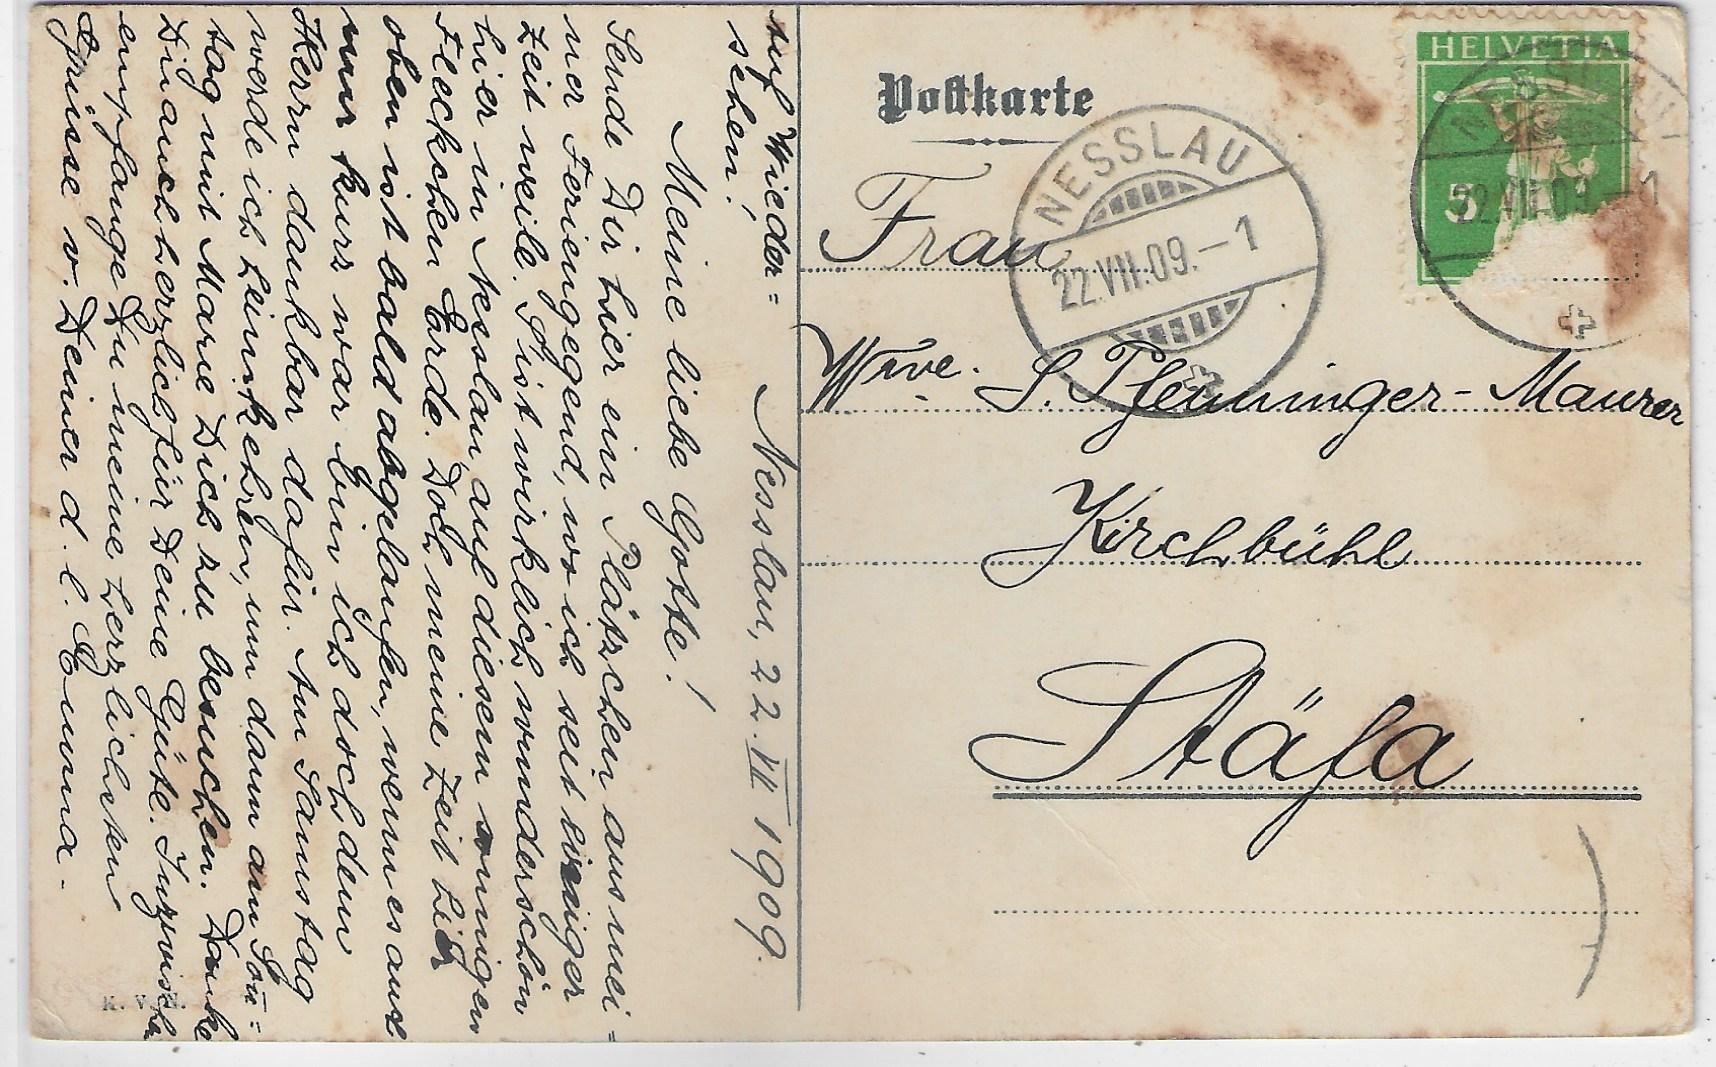 Nesslau, 22. VII 1909.
Meine liebe Gotte!
Sende Dir hier ein Plätzchen aus mei-
ner Feriengegend, wo ich seit einiger
Zeit weile. S'ist wirklich wunderschön
hier in Nesslau, auf diesem sonnigen
Fleckchen Erde. Doch meine Zeit hier
oben ist bald abgelaufen, wenn es auch
nur kurz war bin ich doch dem
Herrn dankbar dafür. Am Samstag
werde ich heimkehren, um dann am Son=
tag mit Marie Dich zu besuchen. Danke
Dir auch herzlich für Deine Güte. Inzwischen
empfange Du meine herzlichsten
Grüsse v. Deiner d. l. Emma.
Auf Wieder=
sehen!
K. V. N.
Postkarte
HELVETIA
5
NESSLAU
22.VII.09.–1
NESSLAU
22.VII.09.–1
Frau
Wwe. S. Pfenninger-Maurer
Kirchbühl
Stäfa